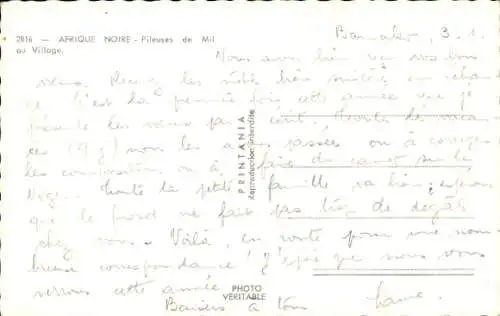 2816 — AFRIQUE NOIRE - Pileuses de Mil
au Village.
Bamako, 3.1.
Nous avons bien reçu vos bons
vœux. Recevez les nôtres bien sincères en échan
ge. C'est la première fois cette année que je
présente les vœux par écrit
ces nous les avons passées ou à corriger
les compositions ou à faire du canot sur le
Niger. Toute la petite famille va bien, espérons
que le froid ne fait pas trop de dégâts
chez vous. Voilà, en route pour une nom-
breuse correspondance! J'espère que nous vous
verrons cette année.
Baisers à tous
PRINTANIA
Reproduction interdite
PHOTO
VÉRITABLE